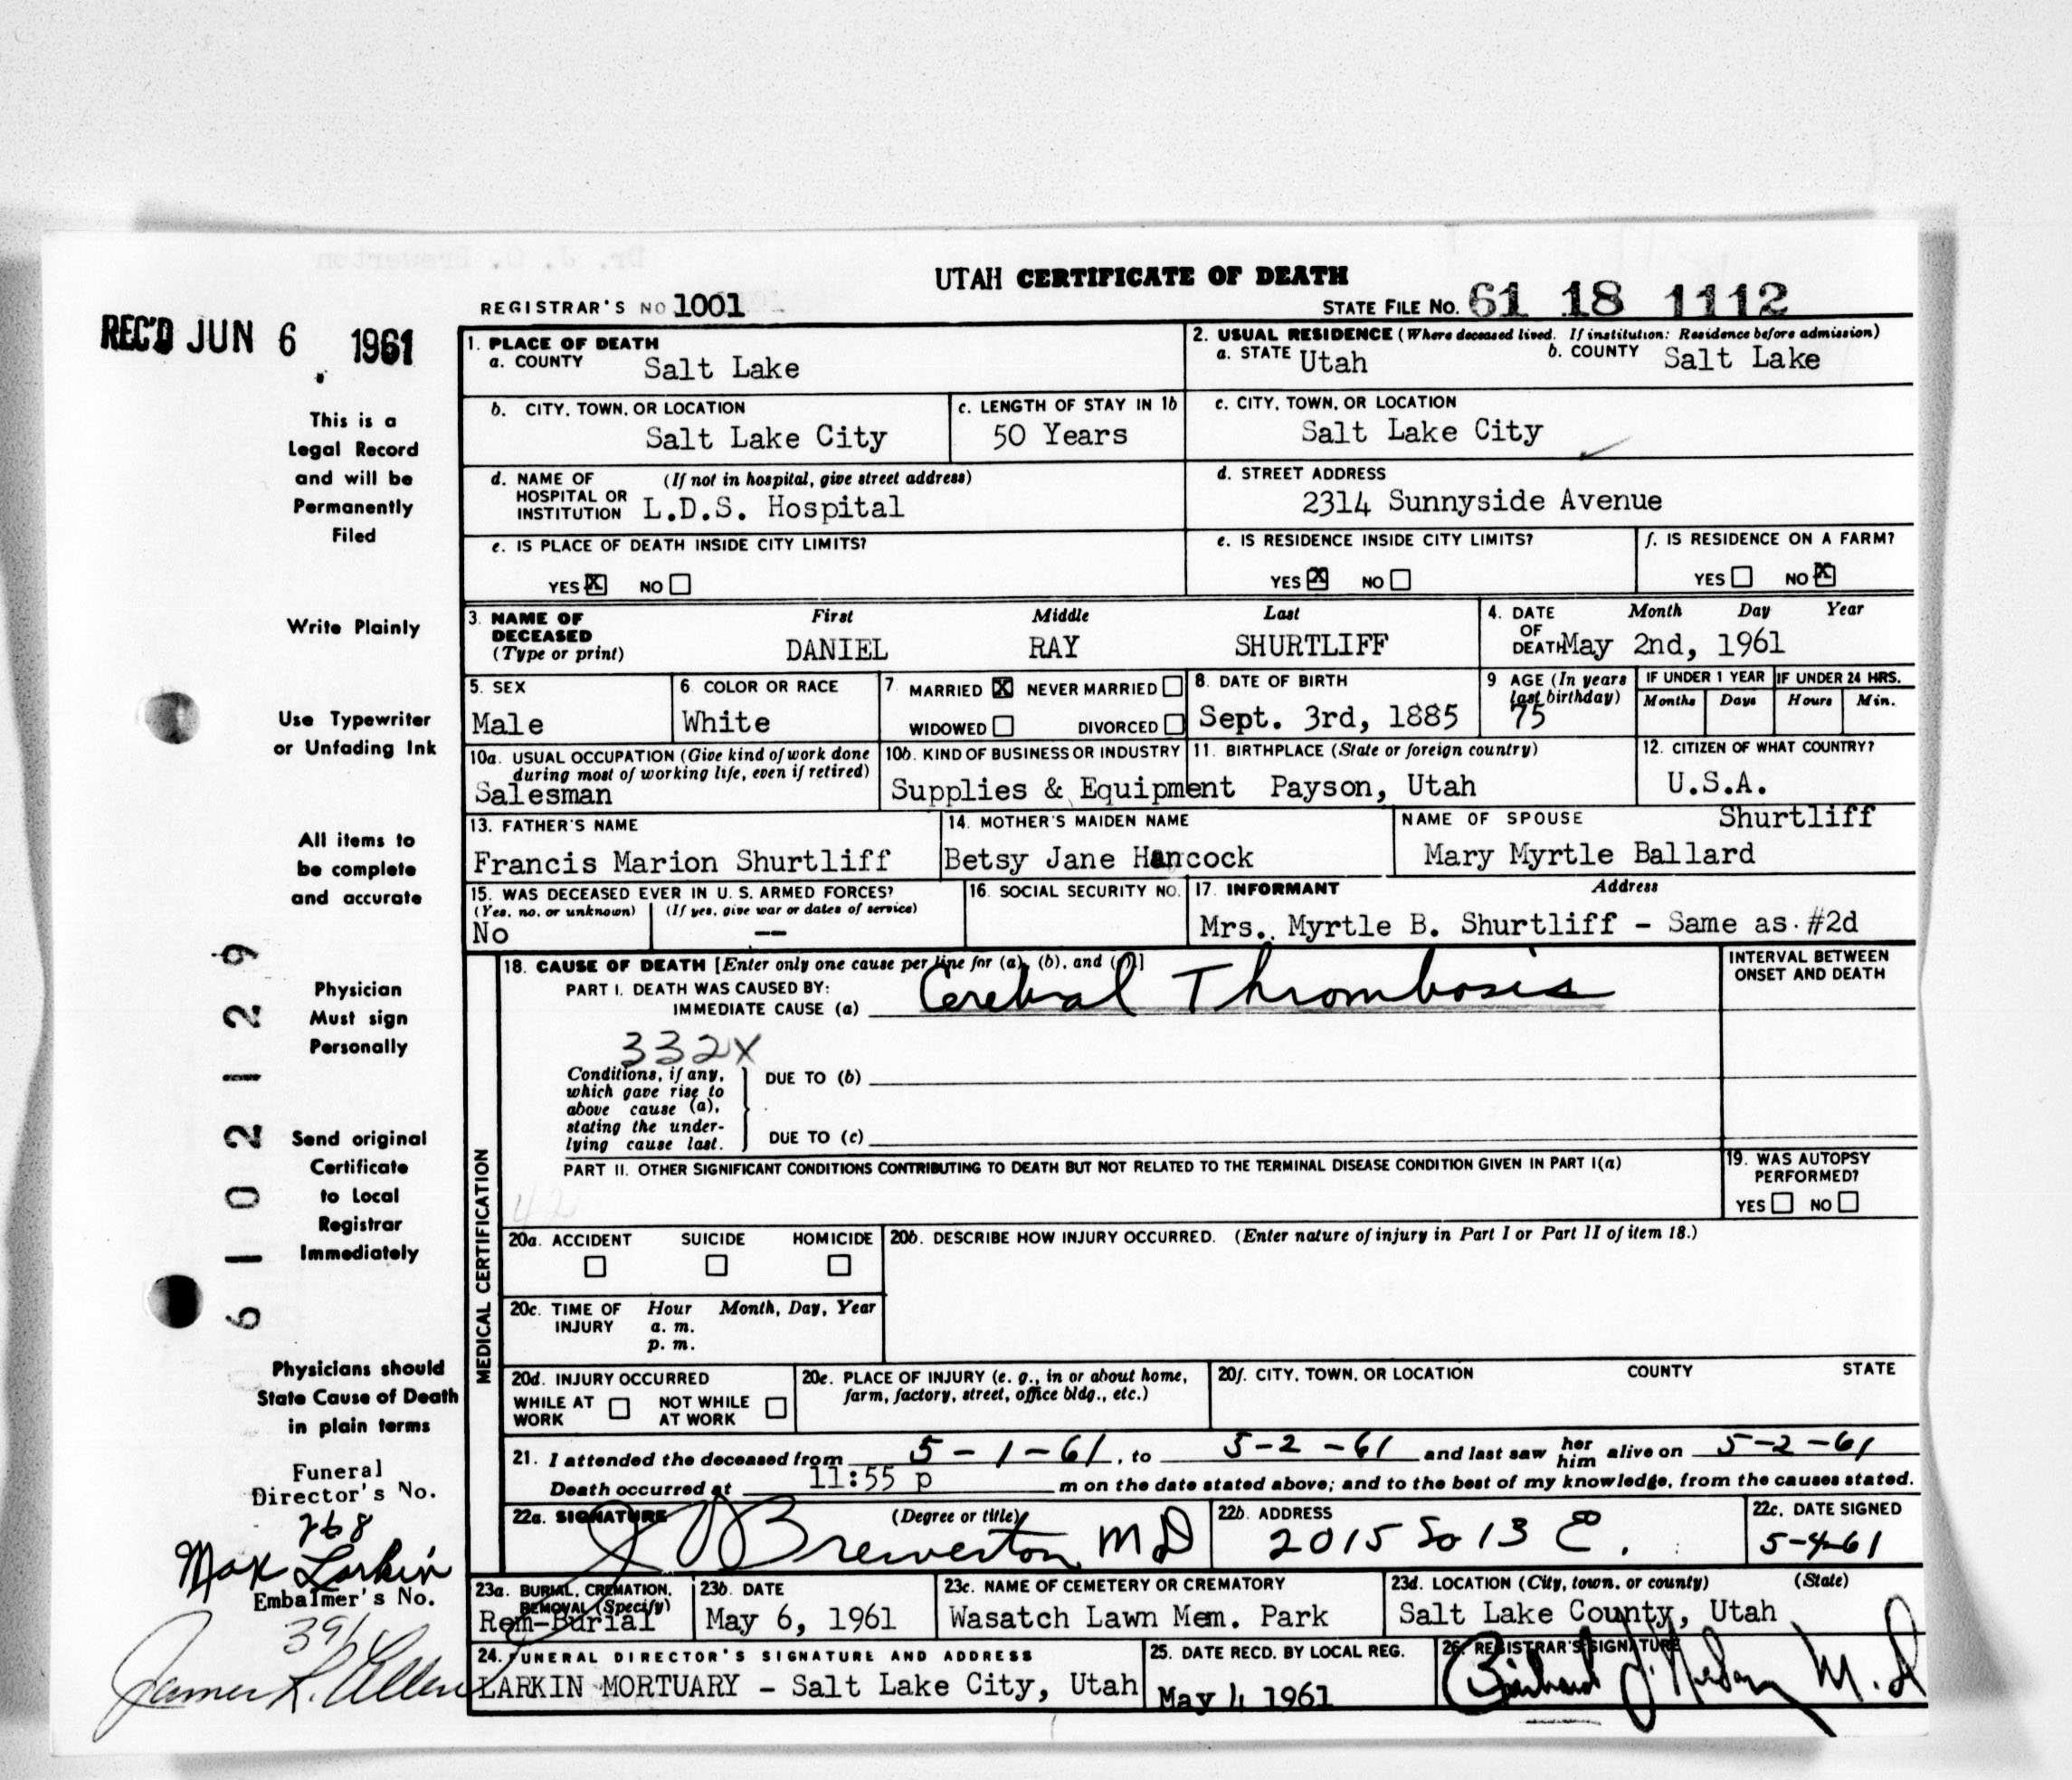 UTAH CERTIFICATE OF DEATH
REGISTRAR'S NO 1001
STATE FILE NO. 61 18 1112
REC'D JUN 6 1961
This is a
Legal Record
and will be
Permanently
Filed
Write Plainly
Use Typewriter
or Unfading Ink
All items to
be complete
and accurate
Physician
Must sign
Personally
Send original
Certificate
to Local
Registrar
Immediately
Physicians should
State Cause of Death
in plain terms
Funeral
Director's No.
268
Max Larkin
Embalmer's No.
391
James R. Allen
6102129
1. PLACE OF DEATH
a. COUNTY Salt Lake
2. USUAL RESIDENCE (Where deceased lived. If institution: Residence before admission)
a. STATE Utah b. COUNTY Salt Lake
b. CITY, TOWN, OR LOCATION
Salt Lake City
c. LENGTH OF STAY IN 1b
50 Years
c. CITY, TOWN, OR LOCATION
Salt Lake City
d. NAME OF HOSPITAL OR INSTITUTION (If not in hospital, give street address)
L.D.S. Hospital
d. STREET ADDRESS
2314 Sunnyside Avenue
e. IS PLACE OF DEATH INSIDE CITY LIMITS?
YES X NO
e. IS RESIDENCE INSIDE CITY LIMITS?
YES X NO
f. IS RESIDENCE ON A FARM?
YES NO X
3. NAME OF DECEASED (Type or print)
First Middle Last
DANIEL RAY SHURTLIFF
4. DATE OF DEATH Month Day Year
May 2nd, 1961
5. SEX
Male
6. COLOR OR RACE
White
7. MARRIED X NEVER MARRIED
WIDOWED DIVORCED
8. DATE OF BIRTH
Sept. 3rd, 1885
9 AGE (In years last birthday)
75
IF UNDER 1 YEAR
Months Days
IF UNDER 24 HRS.
Hours Min.
10a. USUAL OCCUPATION (Give kind of work done during most of working life, even if retired)
Salesman
10b. KIND OF BUSINESS OR INDUSTRY
Supplies & Equipment
11. BIRTHPLACE (State or foreign country)
Payson, Utah
12. CITIZEN OF WHAT COUNTRY?
U.S.A.
13. FATHER'S NAME
Francis Marion Shurtliff
14. MOTHER'S MAIDEN NAME
Betsy Jane Hancock
NAME OF SPOUSE Shurtliff
Mary Myrtle Ballard
15. WAS DECEASED EVER IN U. S. ARMED FORCES?
(Yes, no, or unknown) (If yes, give war or dates of service)
No --
16. SOCIAL SECURITY NO.
17. INFORMANT Address
Mrs. Myrtle B. Shurtliff - Same as #2d
MEDICAL CERTIFICATION
18. CAUSE OF DEATH [Enter only one cause per line for (a), (b), and (c).]
PART I. DEATH WAS CAUSED BY:
IMMEDIATE CAUSE (a) Cerebral Thrombosis
INTERVAL BETWEEN
ONSET AND DEATH
332X
Conditions, if any,
which gave rise to
above cause (a),
stating the under-
lying cause last.
DUE TO (b)
DUE TO (c)
PART II. OTHER SIGNIFICANT CONDITIONS CONTRIBUTING TO DEATH BUT NOT RELATED TO THE TERMINAL DISEASE CONDITION GIVEN IN PART I(a)
42
19. WAS AUTOPSY
PERFORMED?
YES NO
20a. ACCIDENT SUICIDE HOMICIDE
20b. DESCRIBE HOW INJURY OCCURRED. (Enter nature of injury in Part I or Part II of item 18.)
20c. TIME OF INJURY Hour Month, Day, Year
a. m.
p. m.
20d. INJURY OCCURRED
WHILE AT WORK NOT WHILE AT WORK
20e. PLACE OF INJURY (e. g., in or about home, farm, factory, street, office bldg., etc.)
20f. CITY, TOWN, OR LOCATION COUNTY STATE
21. I attended the deceased from 5-1-61, to 5-2-61 and last saw her him alive on 5-2-61
Death occurred at 11:55 p m on the date stated above; and to the best of my knowledge, from the causes stated.
22a. SIGNATURE (Degree or title)
J D Brewerton MD
22b. ADDRESS
2015 So 13 E.
22c. DATE SIGNED
5-4-61
23a. BURIAL, CREMATION, REMOVAL (Specify)
Rem-Burial
23b. DATE
May 6, 1961
23c. NAME OF CEMETERY OR CREMATORY
Wasatch Lawn Mem. Park
23d. LOCATION (City, town, or county) (State)
Salt Lake County, Utah
24. FUNERAL DIRECTOR'S SIGNATURE AND ADDRESS
LARKIN MORTUARY - Salt Lake City, Utah
25. DATE RECD. BY LOCAL REG.
May 4 1961
26. REGISTRAR'S SIGNATURE
M.D